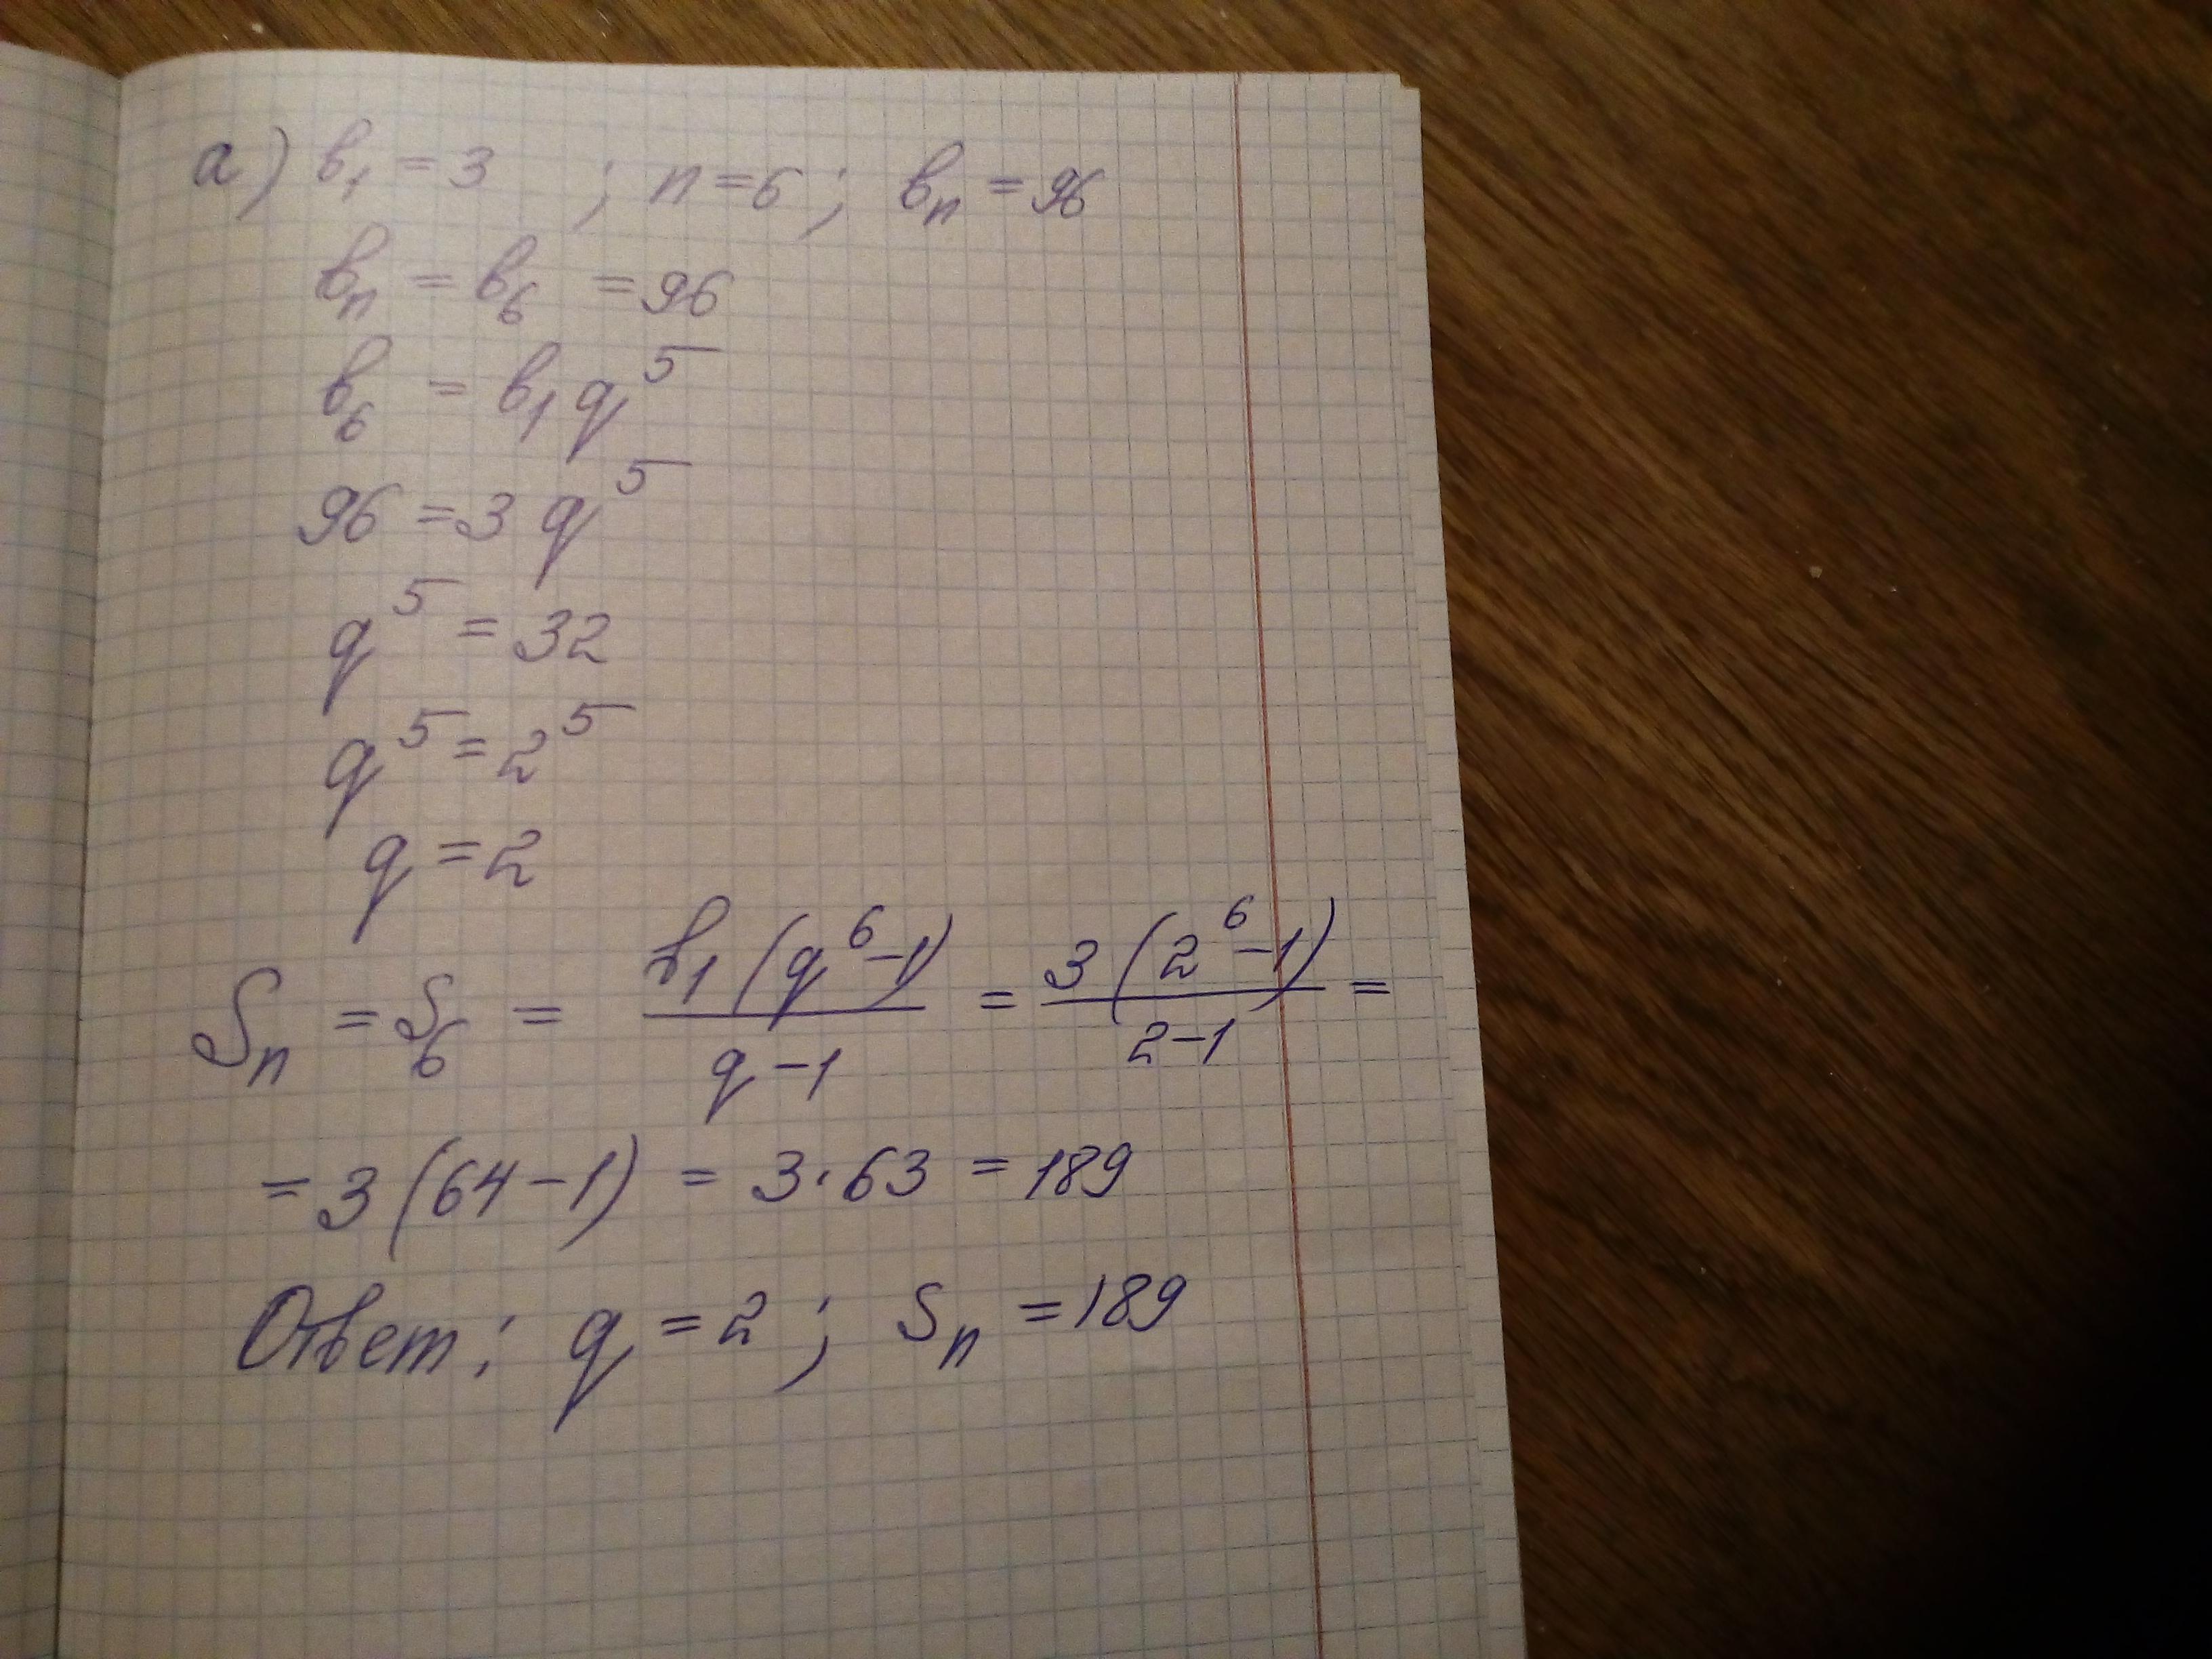 а) b₁ = 3 ; n = 6 ; bₙ = 96
bₙ = b₆ = 96
b₆ = b₁q⁵
96 = 3q⁵
q⁵ = 32
q⁵ = 2⁵
q = 2
Sₙ = S₆ = b₁(q⁶-1)/(q-1) = 3(2⁶-1)/(2-1) =
= 3(64-1) = 3·63 = 189
Ответ: q = 2 ; Sₙ = 189